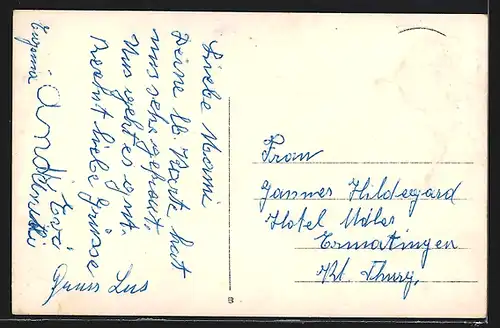 Liebe Mami
Deine lb. Karte hat
uns sehr gefreut.
Uns geht es gut.
Recht liebe Grüsse
Eugenia
Evi
Gruss Lus
Frau
Gannes Hildegard
Hotel Adler
Ermatingen
Kt Thurg.
B